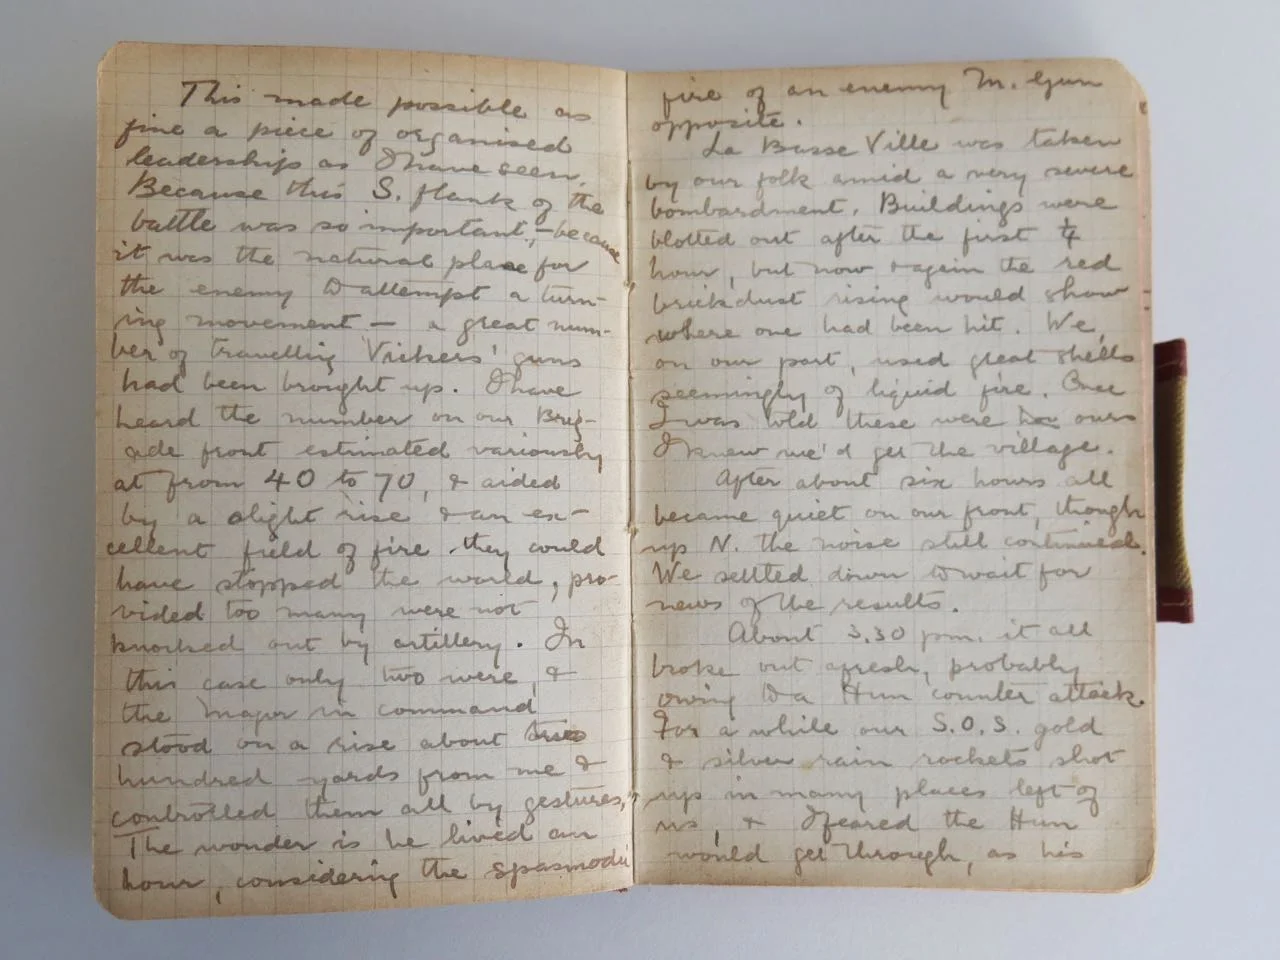 This made possible as
fine a piece of organised
leadership as I have seen.
Because this S. flank of the
battle was so important, – because
it was the natural place for
the enemy to attempt a turn-
ing movement – a great num-
ber of travelling Vickers' guns
had been brought up. I have
heard the number on our Brig-
ade front estimated variously
at from 40 to 70, & aided
by a slight rise & an ex-
cellent field of fire they could
have stopped the world, pro-
vided too many were not
knocked out by artillery. In
this case only two were, &
the Major in command
stood on a rise about
hundred yards from me &
controlled them all by gestures,
The wonder is he lived an
hour, considering the spasmodic
fire of an enemy M. Gun
opposite.
La Basse Ville was taken
by our folk amid a very severe
bombardment. Buildings were
blotted out after the first ¼
hour, but now & again the red
brickdust rising would show
where one had been hit. We,
on our part, used great shells
seemingly of liquid fire. Once
I was told these were ours
I knew we'd get the village.
After about six hours all
became quiet on our front, though
up N. the noise still continued.
We settled down to wait for
news of the results.
About 3.30 pm. it all
broke out afresh, probably
owing to a Hun counter attack.
For a while our S.O.S. gold
& silver rain rockets shot
up in many places left of
us, & I feared the Hun
would get through, as his